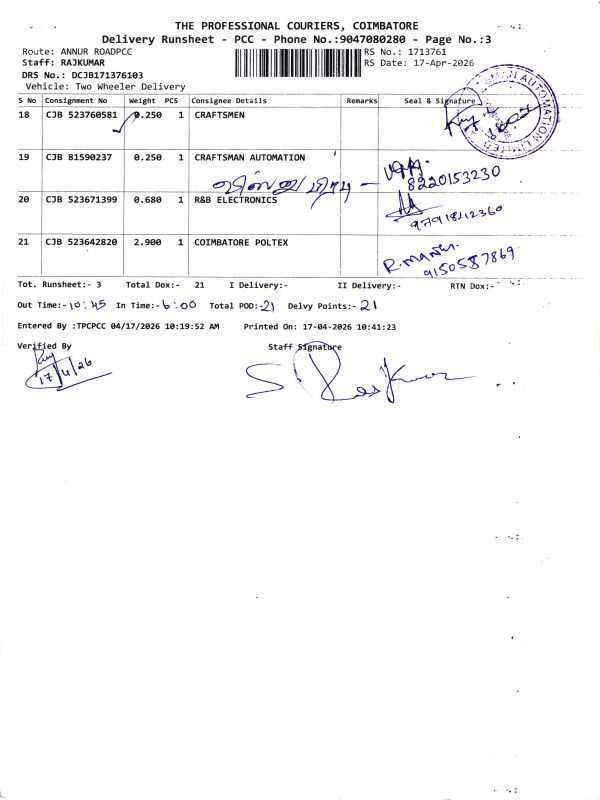 THE PROFESSIONAL COURIERS, COIMBATORE
Delivery Runsheet - PCC - Phone No.:9047080280 - Page No.:3
Route: ANNUR ROADPCC
RS No.: 1713761
Staff: RAJKUMAR
RS Date: 17-Apr-2026
DRS No.: DCJB171376103
Vehicle: Two Wheeler Delivery
S No Consignment No Weight PCS Consignee Details Remarks Seal & Signature
18 CJB 523760581 0.250 1 CRAFTSMEN
19 CJB 81590237 0.250 1 CRAFTSMAN AUTOMATION
8220153230
20 CJB 523671399 0.680 1 R&B ELECTRONICS
9791812360
21 CJB 523642820 2.900 1 COIMBATORE POLTEX
9150587869
Tot. Runsheet:- 3 Total Dox:- 21 I Delivery:- II Delivery:- RTN Dox:-
Out Time:- 10:45 In Time:- 6:00 Total POD:- 21 Delvy Points:- 21
Entered By :TPCPCC 04/17/2026 10:19:52 AM Printed On: 17-04-2026 10:41:23
Verified By Staff Signature
17/4/26